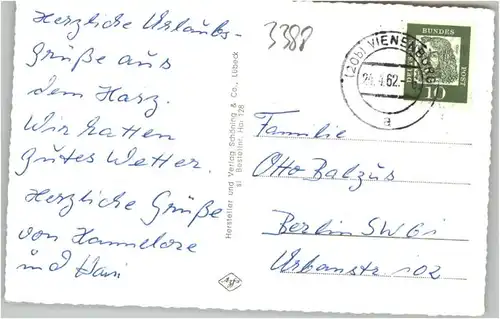 Herzliche Urlaubs-
grüße aus
dem Harz.
Wir hatten
gutes Wetter.
Herzliche Grüße
von Hannelore
und Hari
3388
Hersteller und Verlag Schöning & Co., Lübeck
Bestellnr. Hoi 128
(20b) VIENENBURG
62.
a
DEUTSCHE
BUNDES
POST
10
Familie
Otto Balzus
Berlin SW 61
Urbanstr 102